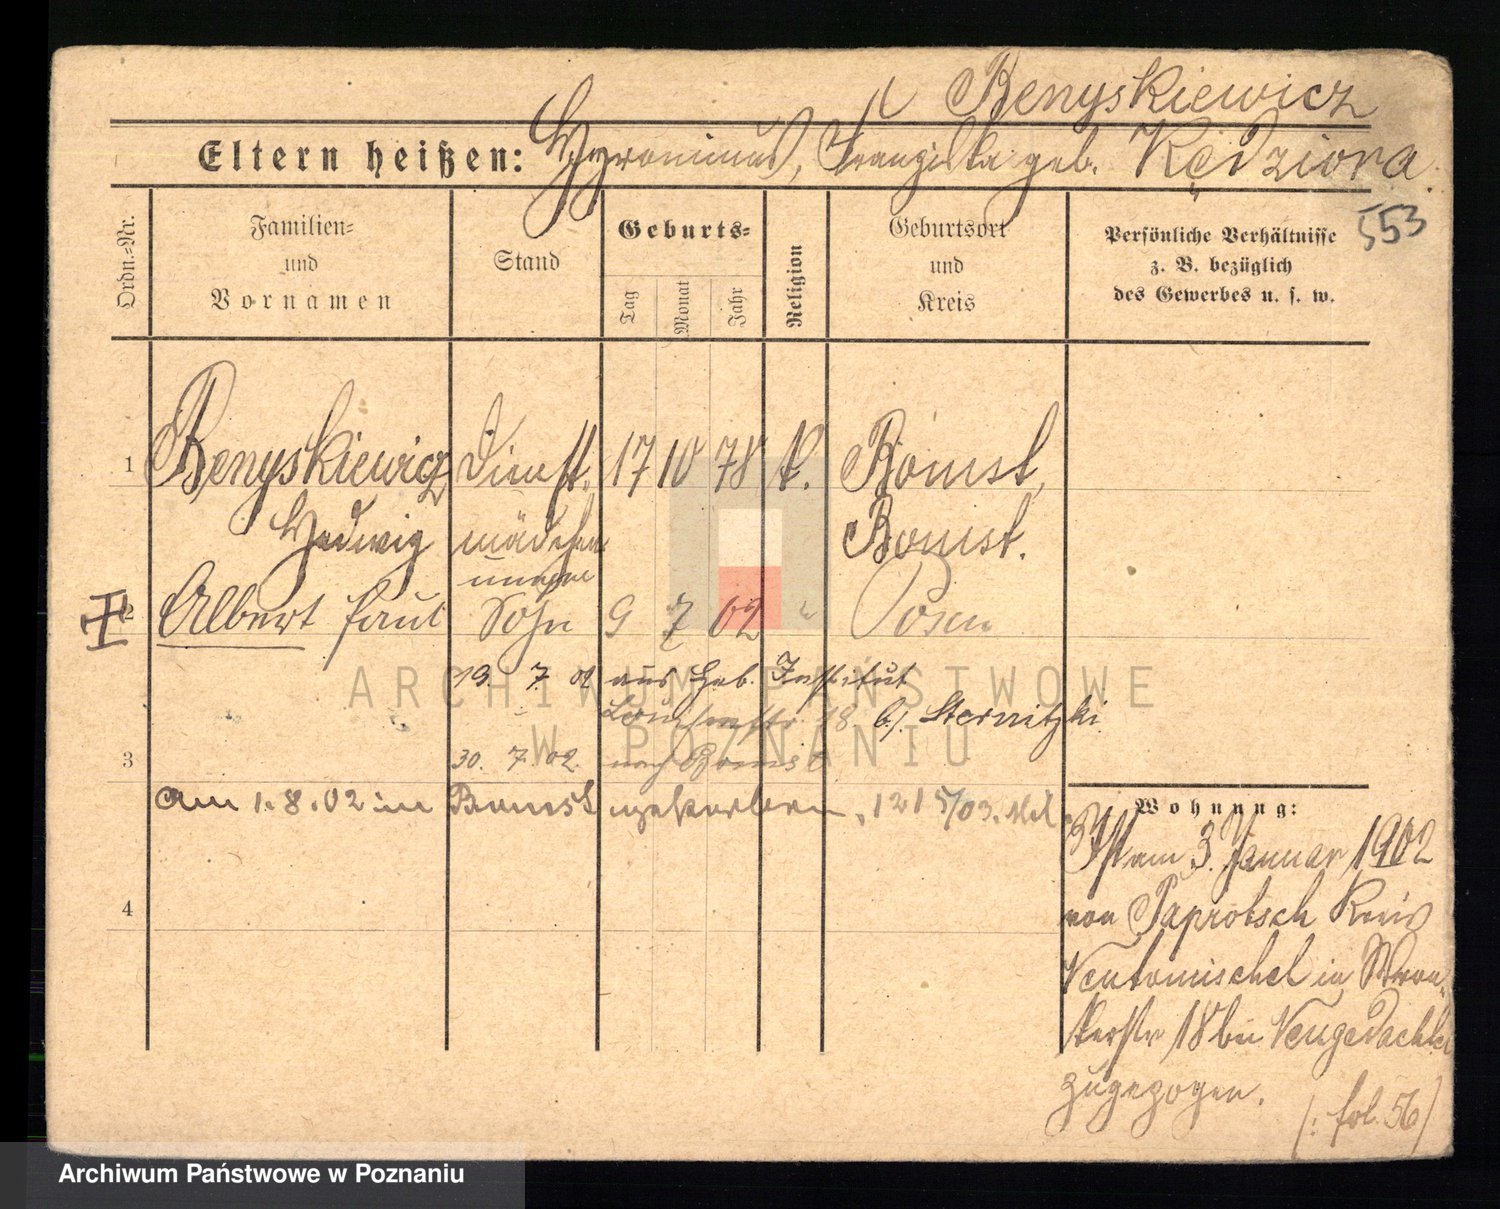 Benyskiewicz
Eltern heißen: Hyronimus, Franziska geb. Kędziora.
553
Ordn.-Nr.
Familien- und Vornamen
Stand
Geburts-
Tag
Monat
Jahr
Religion
Geburtsort und Kreis
Persönliche Verhältnisse
z. B. bezüglich
des Gewerbes u. s. w.
1 Benyskiewicz Dienst- 17 10 78 k. Bomst,
Hedwig mädchen Bomst.
unehe
2 Albert Paul Sohn 9 7 02 " Posen
19. 7. 02 aus Heb. Institut
18 b/. Sternitzki
3 30. 7. 02. nach Bomst
am 1.8.02 in Bomst
Wohnung:
Ist am 3. Januar 1902
von Paprotsch Kreis
4
Neutomischel in Wron-
kerstr 18 bei Neugedachter
zugezogen.
(: fol. 56)
ARCHIWUM PAŃSTWOWE
W POZNANIU
Archiwum Państwowe w Poznaniu